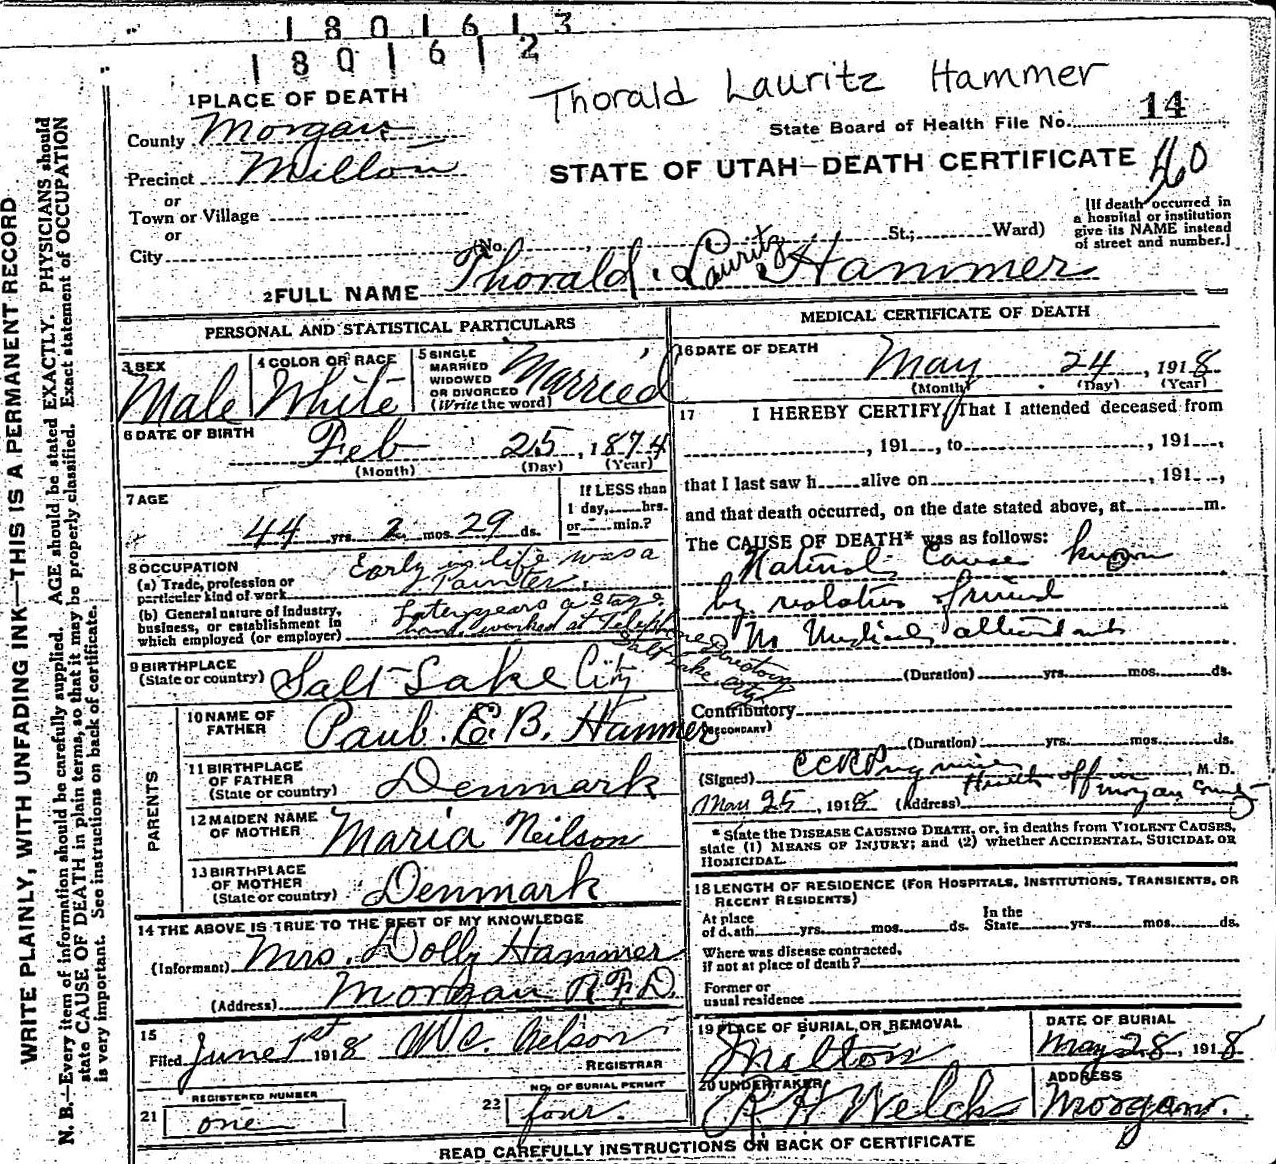 1801613
1801612
Thorald Lauritz Hammer
1 PLACE OF DEATH
State Board of Health File No. 14
County Morgan
STATE OF UTAH—DEATH CERTIFICATE
Precinct Milton
or
Town or Village
or
City
No. St.; Ward)
[If death occurred in
a hospital or institution
give its NAME instead
of street and number.]
2 FULL NAME Thorald Lauritz Hammer
WRITE PLAINLY, WITH UNFADING INK—THIS IS A PERMANENT RECORD
N. B.—Every item of information should be carefully supplied. AGE should be stated EXACTLY. PHYSICIANS should
state CAUSE OF DEATH in plain terms, so that it may be properly classified. Exact statement of OCCUPATION
is very important. See instructions on back of certificate.
PERSONAL AND STATISTICAL PARTICULARS
3 SEX
Male
4 COLOR OR RACE
White
5 SINGLE
MARRIED
WIDOWED
OR DIVORCED
(Write the word)
Married
6 DATE OF BIRTH
Feb 25, 1874
(Month) (Day) (Year)
7 AGE
44 yrs. 2 mos. 29 ds.
If LESS than
1 day, hrs.
or min.?
8 OCCUPATION
(a) Trade, profession or
particular kind of work
Early in life was a
Painter.
(b) General nature of Industry,
business, or establishment in
which employed (or employer)
Later years a Stage
hand, worked at Telephone Directory
Salt Lake City
9 BIRTHPLACE
(State or country) Salt Lake City
PARENTS
10 NAME OF
FATHER Paul. E.B. Hammer
11 BIRTHPLACE
OF FATHER
(State or country) Denmark
12 MAIDEN NAME
OF MOTHER Maria Neilson
13 BIRTHPLACE
OF MOTHER
(State or country) Denmark
14 THE ABOVE IS TRUE TO THE BEST OF MY KNOWLEDGE
(Informant) Mrs. Dolly Hammer
(Address) Morgan R.F.D.
15
Filed June 1st 1918 Nelson
REGISTRAR
REGISTERED NUMBER
21 one
NO. OF BURIAL PERMIT
22 four.
MEDICAL CERTIFICATE OF DEATH
16 DATE OF DEATH
May 24, 1918
(Month) (Day) (Year)
17 I HEREBY CERTIFY, That I attended deceased from
, 191 , to , 191 ,
that I last saw h alive on , 191 ,
and that death occurred, on the date stated above, at m.
The CAUSE OF DEATH* was as follows:
Natural Cause known
by relatives friend
No Medical attendant
(Duration) yrs. mos. ds.
Contributory
(SECONDARY)
(Duration) yrs. mos. ds.
(Signed) , M. D.
Health officer
May 25, 1918 (Address) Morgan County
* State the DISEASE CAUSING DEATH, or, in deaths from VIOLENT CAUSES,
state (1) MEANS OF INJURY; and (2) whether ACCIDENTAL, SUICIDAL OR
HOMICIDAL.
18 LENGTH OF RESIDENCE (FOR HOSPITALS, INSTITUTIONS, TRANSIENTS, OR
RECENT RESIDENTS)
At place
of death yrs. mos. ds.
In the
State yrs. mos. ds.
Where was disease contracted,
if not at place of death?
Former or
usual residence
19 PLACE OF BURIAL OR REMOVAL
Milton
DATE OF BURIAL
May 28, 1918
20 UNDERTAKER
Welch
ADDRESS
Morgan.
READ CAREFULLY INSTRUCTIONS ON BACK OF CERTIFICATE